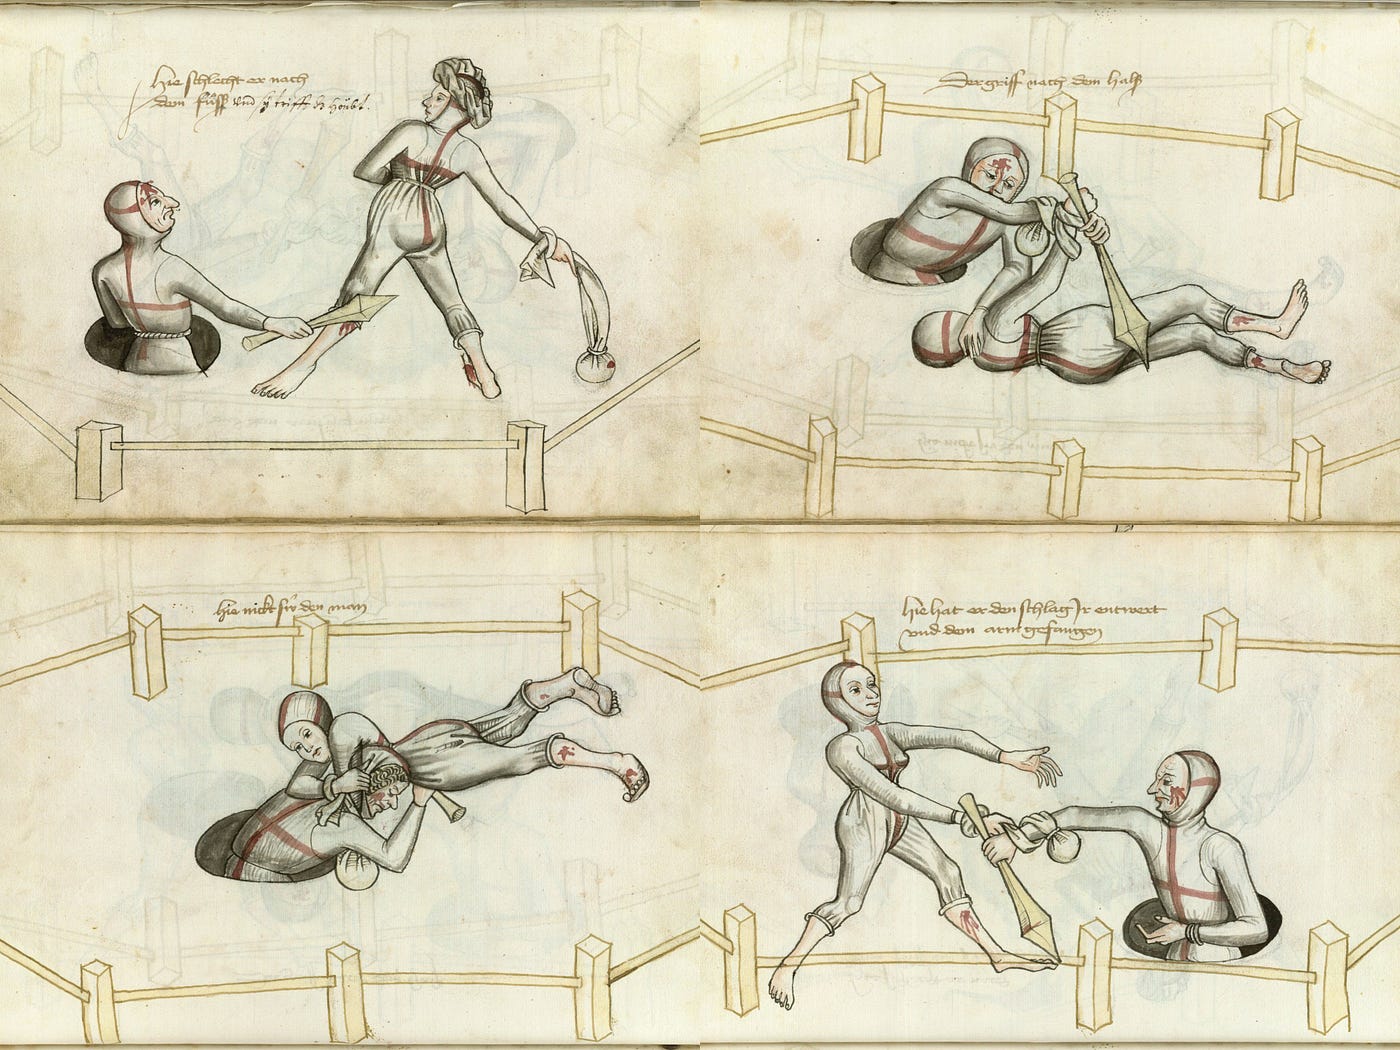 Hie schlecht er nach
dem fůss vnd sy trifft dz höubt.
Der griff nach dem halß
hie nickt sir den man
hie hat er den schlag Jr entwert
vnd den arm gefangen